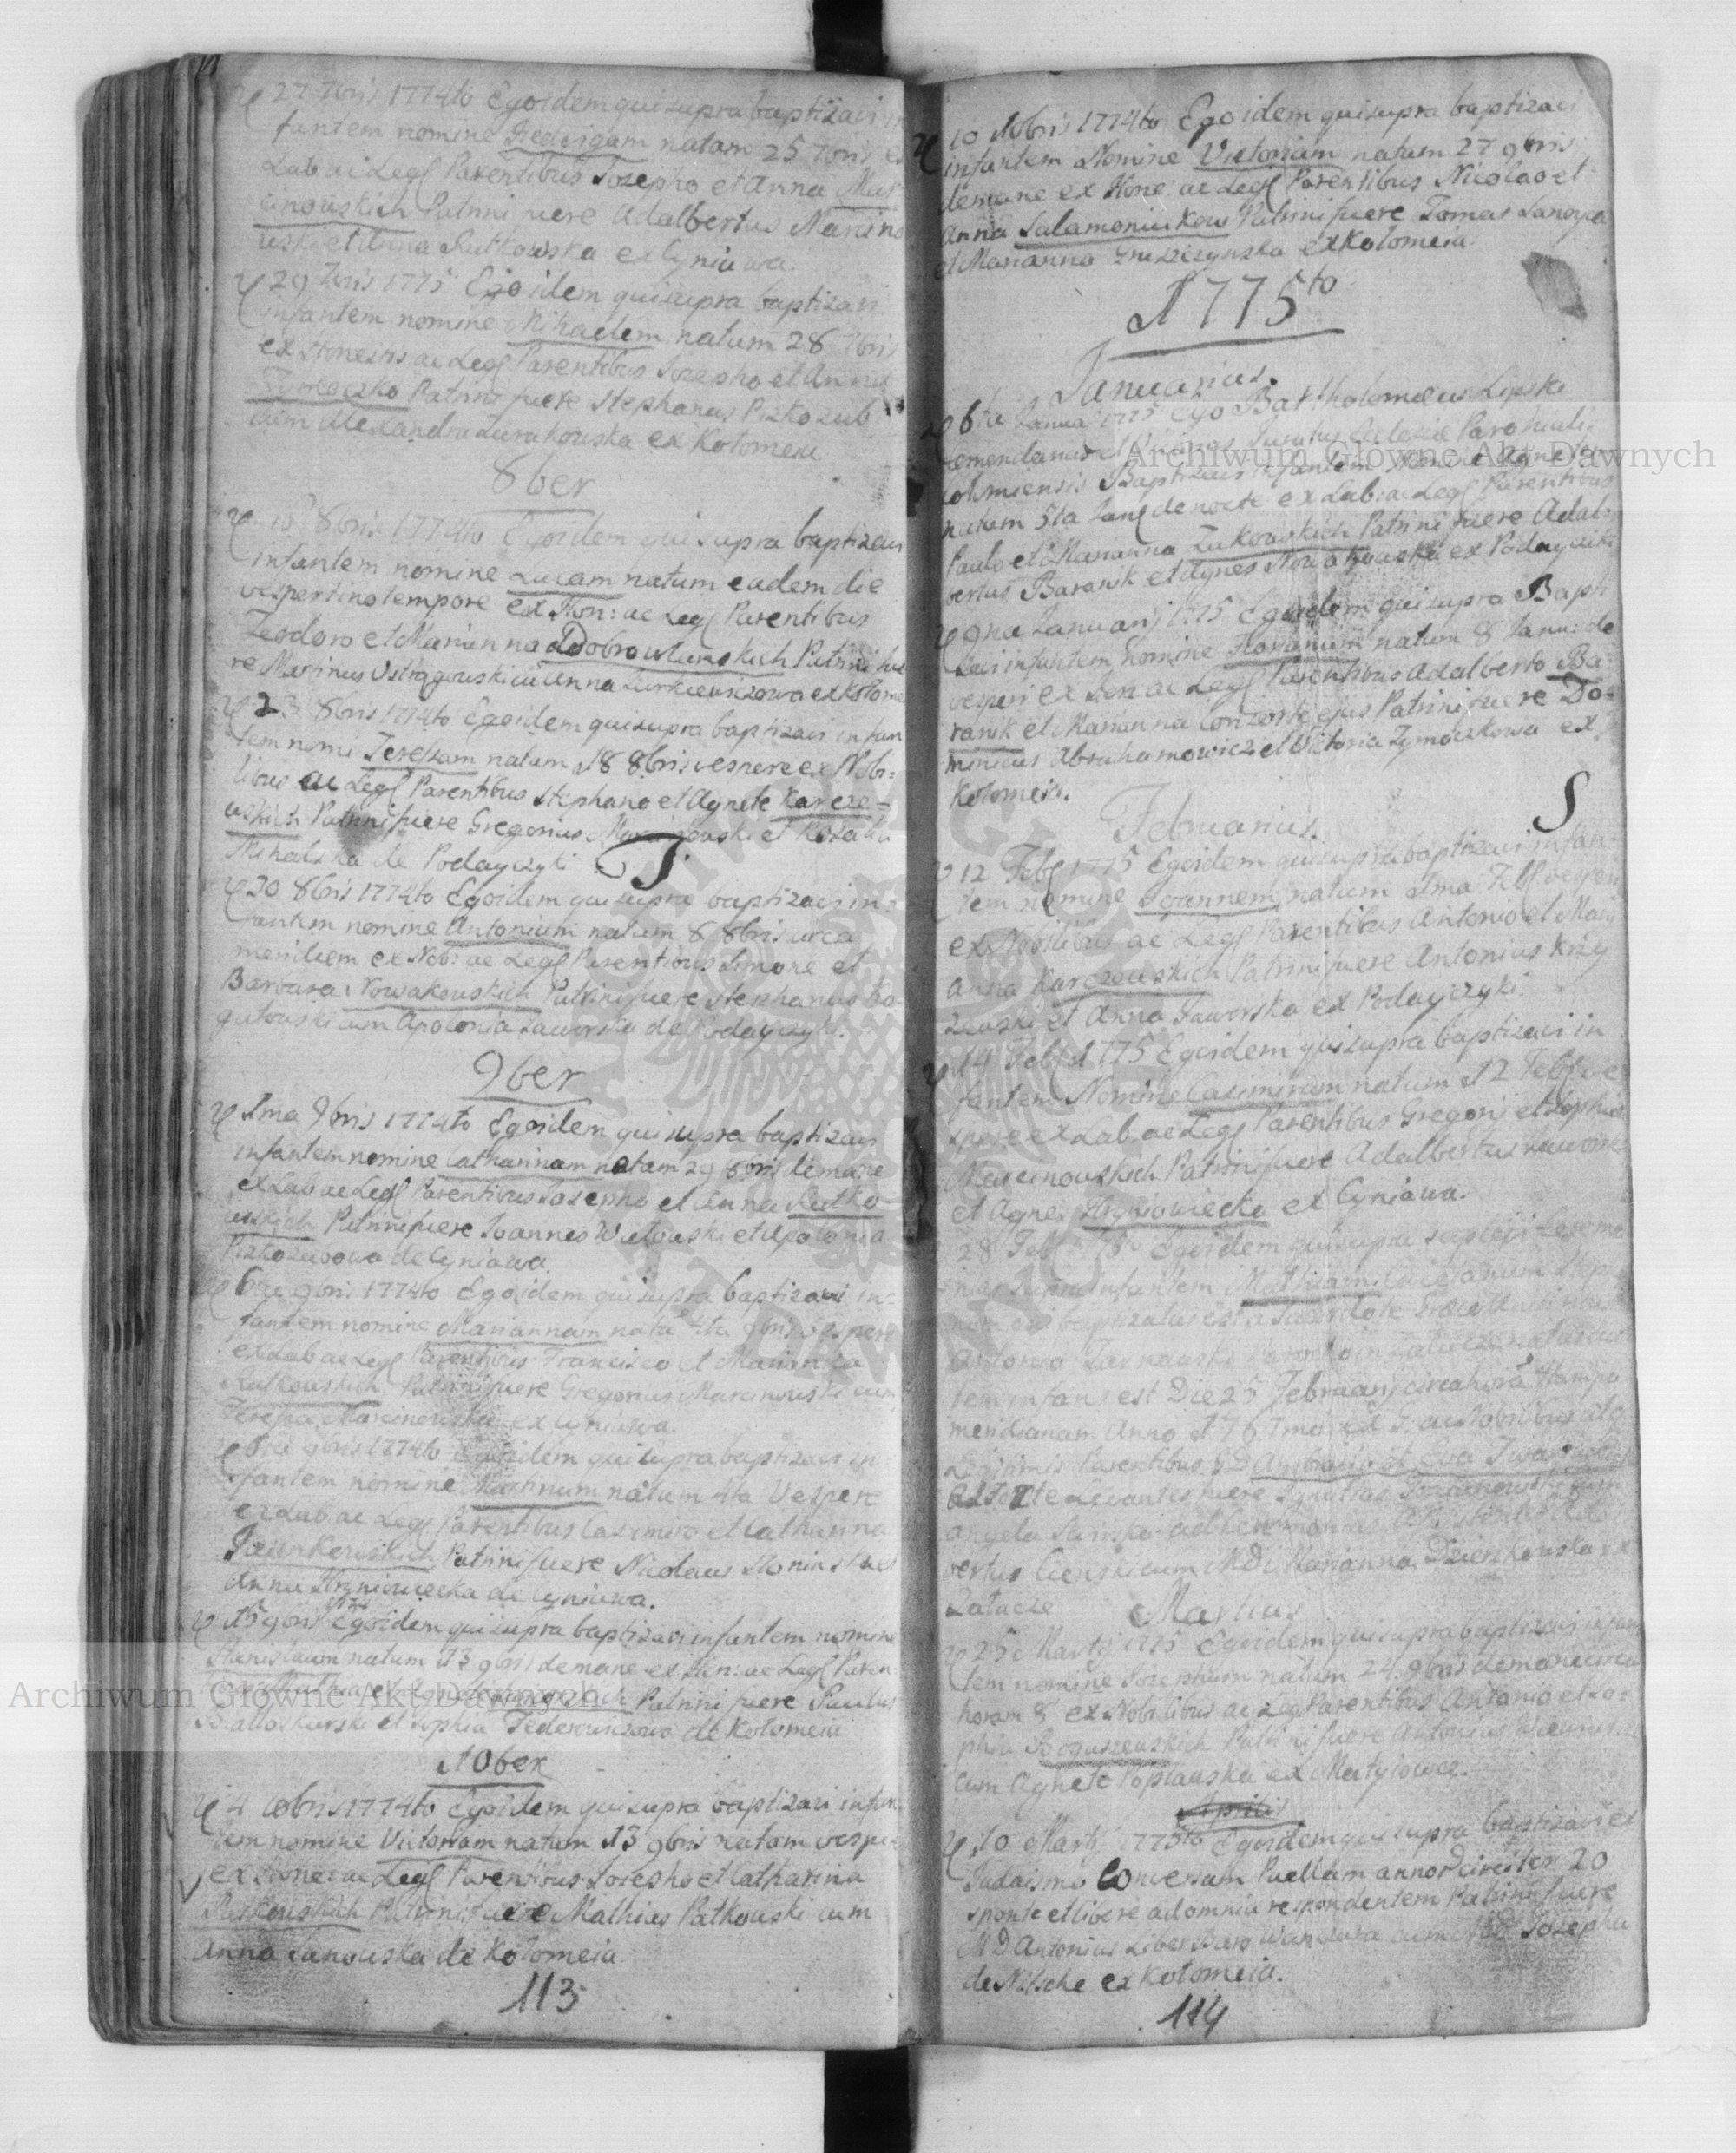 27 7bris 1774to Ego idem qui supra baptizavi in
fantem nomine Hedvigam natam 25 7bris ex
Lab ac Leg Parentibus Josepho et Anna Mar
cinowskich Patrini fuere Adalbertus Marcino
wski et Anna Rutkowska ex Cyniawa.
29 7bris 1775 Ego idem qui supra baptizavi
infantem nomine Mihaelem natum 28 7bris
ex Honestis ac Leg Parentibus Josepho et Anna
Patrini fuere Stephanus Pizkozub
cum Alexandra Zurakowska ex Kołomeia
8ber
8bris 1774to Ego idem qui supra baptizavi
infantem nomine Lucam natum eadem die
vespertino tempore ex Hon: ac Leg Parentibus
Teodoro et Marianna Dobrowlanskich Patrini fue
re Martinus Ostrągowski cu Anna Turkiewiczowa ex Kołome
23 8bris 1774to Ego idem qui supra baptizavi infan
tem nomi Teressam natam 18 8bris vespere ex Nobi=
libus ac Leg Parentibus Stephano et Agnete Karcze=
wskich Patrini fuere Gregorius et Rozalia
Mihalska de Podayczyki T
30 8bris 1774to Ego idem qui supra baptizavi in=
fantem nomine Antonium natum 8 8bris circa
meridiem ex Nob: ac Leg Parentibus Simone et
Barbara Nowakowskich Patrini fuere Stephanus Bo
gutowski cum Apolonia Jaworska de Podayczyki.
9ber
1ma 9bris 1774to Ego idem qui supra baptizavi
infantem nomine Catharinam natam 29 8bris de mane
ex Lab ac Leg Parentibus Josepho et Anna Rutko
wskich Patrini fuere Joannes Witowski et Apolonia
Pizkozubowa de Cyniawa.
6ta 9bris 1774to Ego idem qui supra baptizavi in=
fantem nomine Mariannam nata 4ta 9bris vespere
ex Lab ac Leg Parentibus Francisco et Marianna
Rutkowskich Patrini fuere Gregorius Marcinowski cum
Teressa Marcinowska ex Cyniawa.
6ta 9bris 1774to Ego idem qui supra baptizavi in=
fantem nomine Martinum natum 4ta Vespere
ex Lab ac Leg Parentibus Casimiro et Catharina
Patrini fuere Nicolaus et
Anna Hryniowiecka de Cyniawa.
15 9bris 1774 Ego idem qui supra baptizavi infantem nomine
Stanislaum natum 13 9bris de mane ex Hon: ac Leg Paren
Patrini fuere Paulus
Białoskurski et Sophia Federowiczowa de Kołomeia
10ber
4 10bris 1774to Ego idem qui supra baptizavi infan
tem nomine Victoriam natum 13 9bris natam vespe
ex Hone: ac Leg Parentibus Josepho et Catharina
Patrini fuere Mathias Patkowski cum
Anna Janowska de Kołomeia
113
10 Xbris 1774to Ego idem qui supra baptizavi
infantem Nomine Victoriam natam 27 9bris
de mane ex Hone: ac Leg Parentibus Nicolao et
Anna Salamoniukow Patrini fuere Tomas
et Marianna Gruszczynska ex Kołomeia.
1775to
Januarius.
6ta Janua 1775 Ego Bartholomeus Lipski
Comendarius Ecclesie Parohialis
Baptizavi infantem Nomine Agnetem
natam 5ta Janu de nocte ex Lab: ac Leg Parentibus
Paulo et Marianna Zukowskich Patrini fuere Adal=
bertus Baranik et Agnes Nowakowska ex Podayczyki
9na Januarij 1775 Ego idem qui supra Bapti
zavi infantem nomine Florianum natum 8 Janu: de
vesperi ex Hon: ac Leg Parentibus Adalberto Ba=
ranik et Marianna Conzorte ejus Patrini fuere Do=
minicus Abrahamowicz et Victoria Tymoczkowa ex
Kołomeia.
Februarius. S
12 Feb 1775 Ego idem qui supra baptizavi infan=
tem nomine Joannem natum 1ma Feb vespere
ex Nobilibus ac Leg Parentibus Antonio et Mari
anna Karczewskich Patrini fuere Antonius Krzy
zewski et Anna Jaworska ex Podayczyki.
14 Feb 1775 Ego idem qui supra baptizavi in
fantem Nomine Casimirum natum 12 Feb ve
spere ex Lab ac Leg Parentibus Gregorij et Sophia
Marcinowskich Patrini fuere Adalbertus
et Agnes Hryniowiecka ex Cyniawa.
28 Feb Ego idem qui supra suplevi Ceremo
nias supra infantem Mathiam Caietanum
baptizatus est a Sacerdote
Antonio Tarnawski Parocho in Załucze natus au
tem infans est Die 25 Februarij circa hora
meridianam Anno 1767mo ex ac Nobilibus atq
Legitimis Parentibus GD Ambrosio et Eva
de Fonte Levantes fuere Ignatius cum
Angela ad Ceremonias
cum MD Marianna Dzierzkowska ex
Załucze
Martius
25 Martij 1775 Ego idem qui supra baptizavi infan
tem nomine Josephum natum 24 9bris de mane circa
horam 8 ex Nobilibus ac Leg Parentibus Antonio et So=
phia Boguszewskich Patrini fuere Antonius
cum Agnete Popławska ex Matyiowce.
Aprilis
30 Martij 1775to Ego idem qui supra baptizavi ex
Judaismo Conversam Puellam annor circiter 20
sponte et libere ad omnia respondentem Patrini fuere
MD Antonius Liber Baro cum MD Josepha
de Nitsche ex Kołomeia.
114
Archiwum Główne Akt Dawnych
Archiwum Główne Akt Dawnych